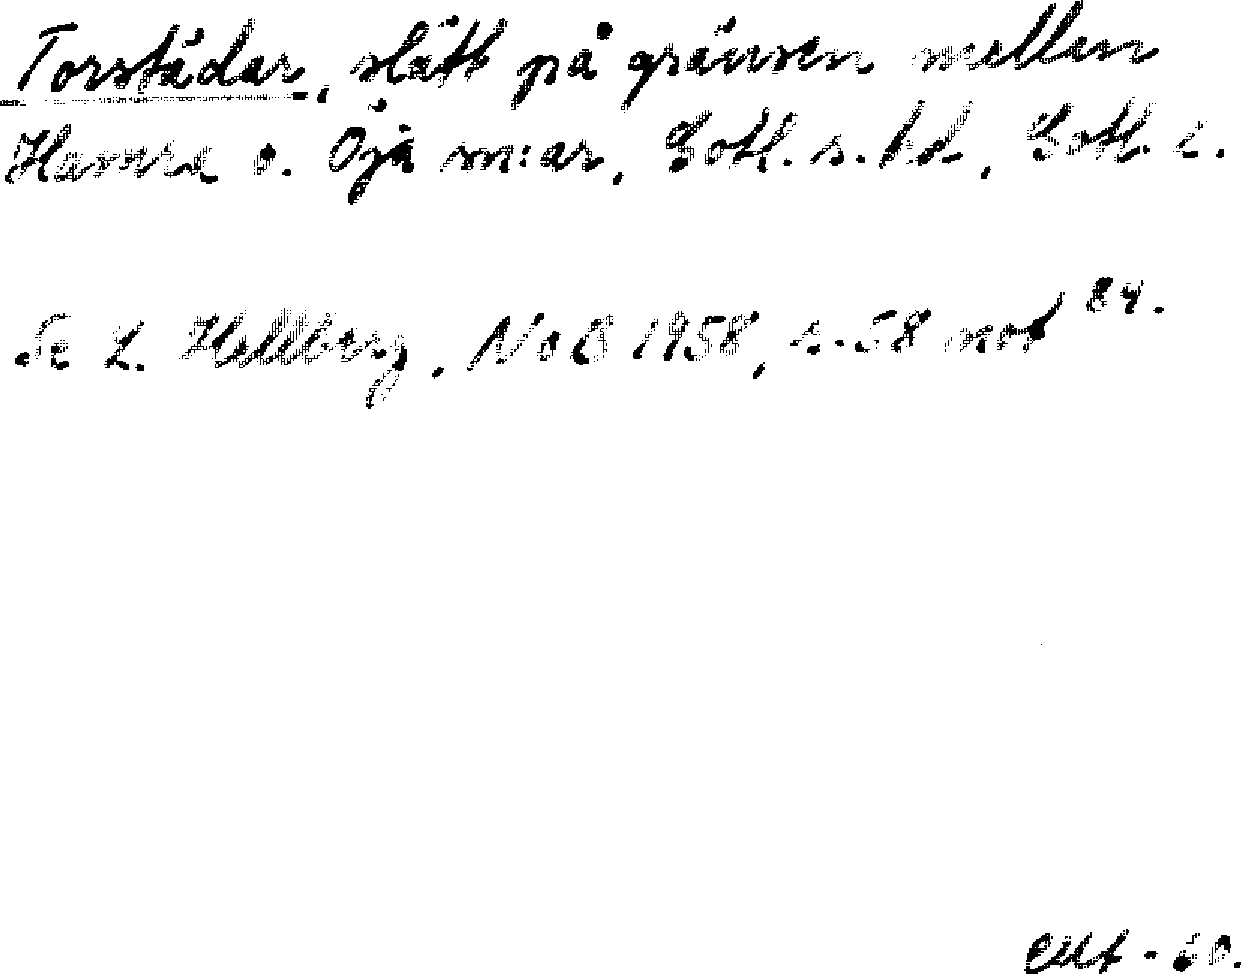 Torstädar, slätt på gränsen mellan
Hamra o. Öja m:ar, Gotl. s. hd, Gotl. l.
Se L. Hellberg, NoB 1958, s. 58 not 84.
60.